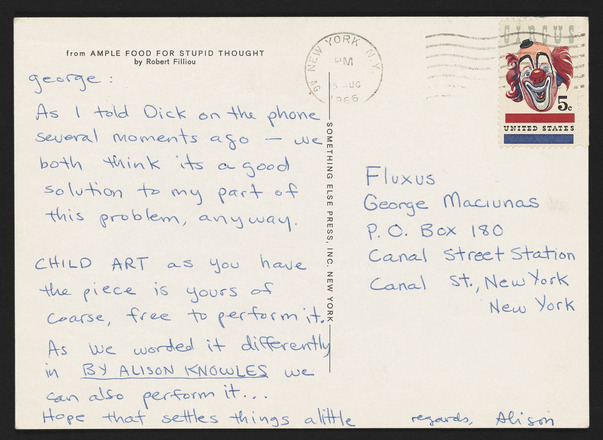 from AMPLE FOOD FOR STUPID THOUGHT
by Robert Filliou
george:
As I told Dick on the phone
several moments ago — we
both think its a good
solution to my part of
this problem, anyway.
CHILD ART as you have
the piece is yours of
coarse, free to perform it.
As we worded it differently
in BY ALISON KNOWLES we
can also perform it...
Hope that settles things alittle
regards, Alison
SOMETHING ELSE PRESS, INC. NEW YORK
NEW YORK, N.Y.
PM
AUG
1966
CIRCUS
5c
UNITED STATES
Fluxus
George Maciunas
P.O. Box 180
Canal Street Station
Canal St., New York
New York